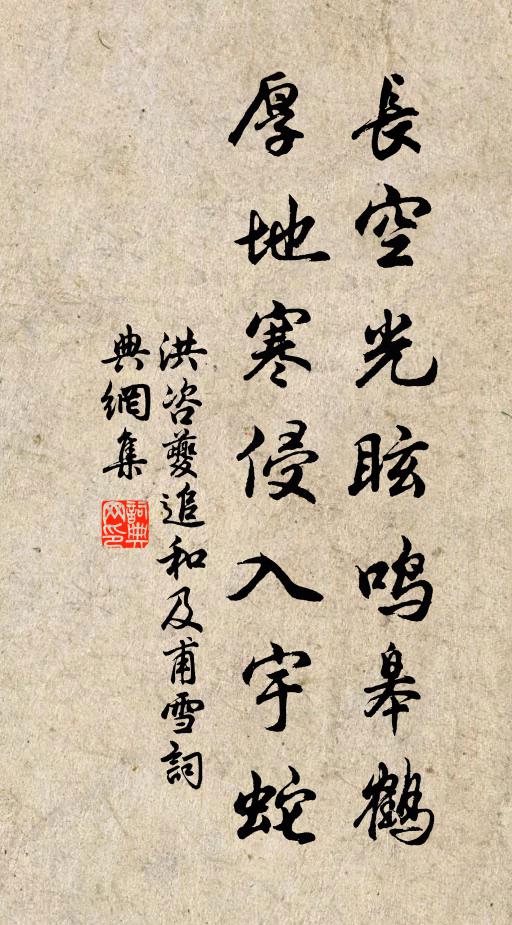 長空光眩鳴皋鶴
厚地寒侵入宇蛇
洪咨夔追和及甫雪詞
典網集
詞典網印